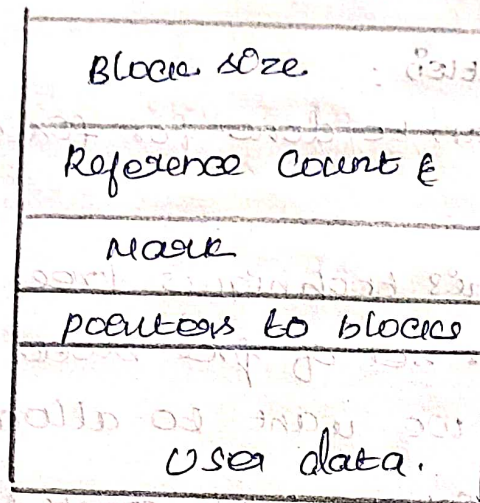 Block size
Reference Count &
Mark
pointers to blocks
User data.